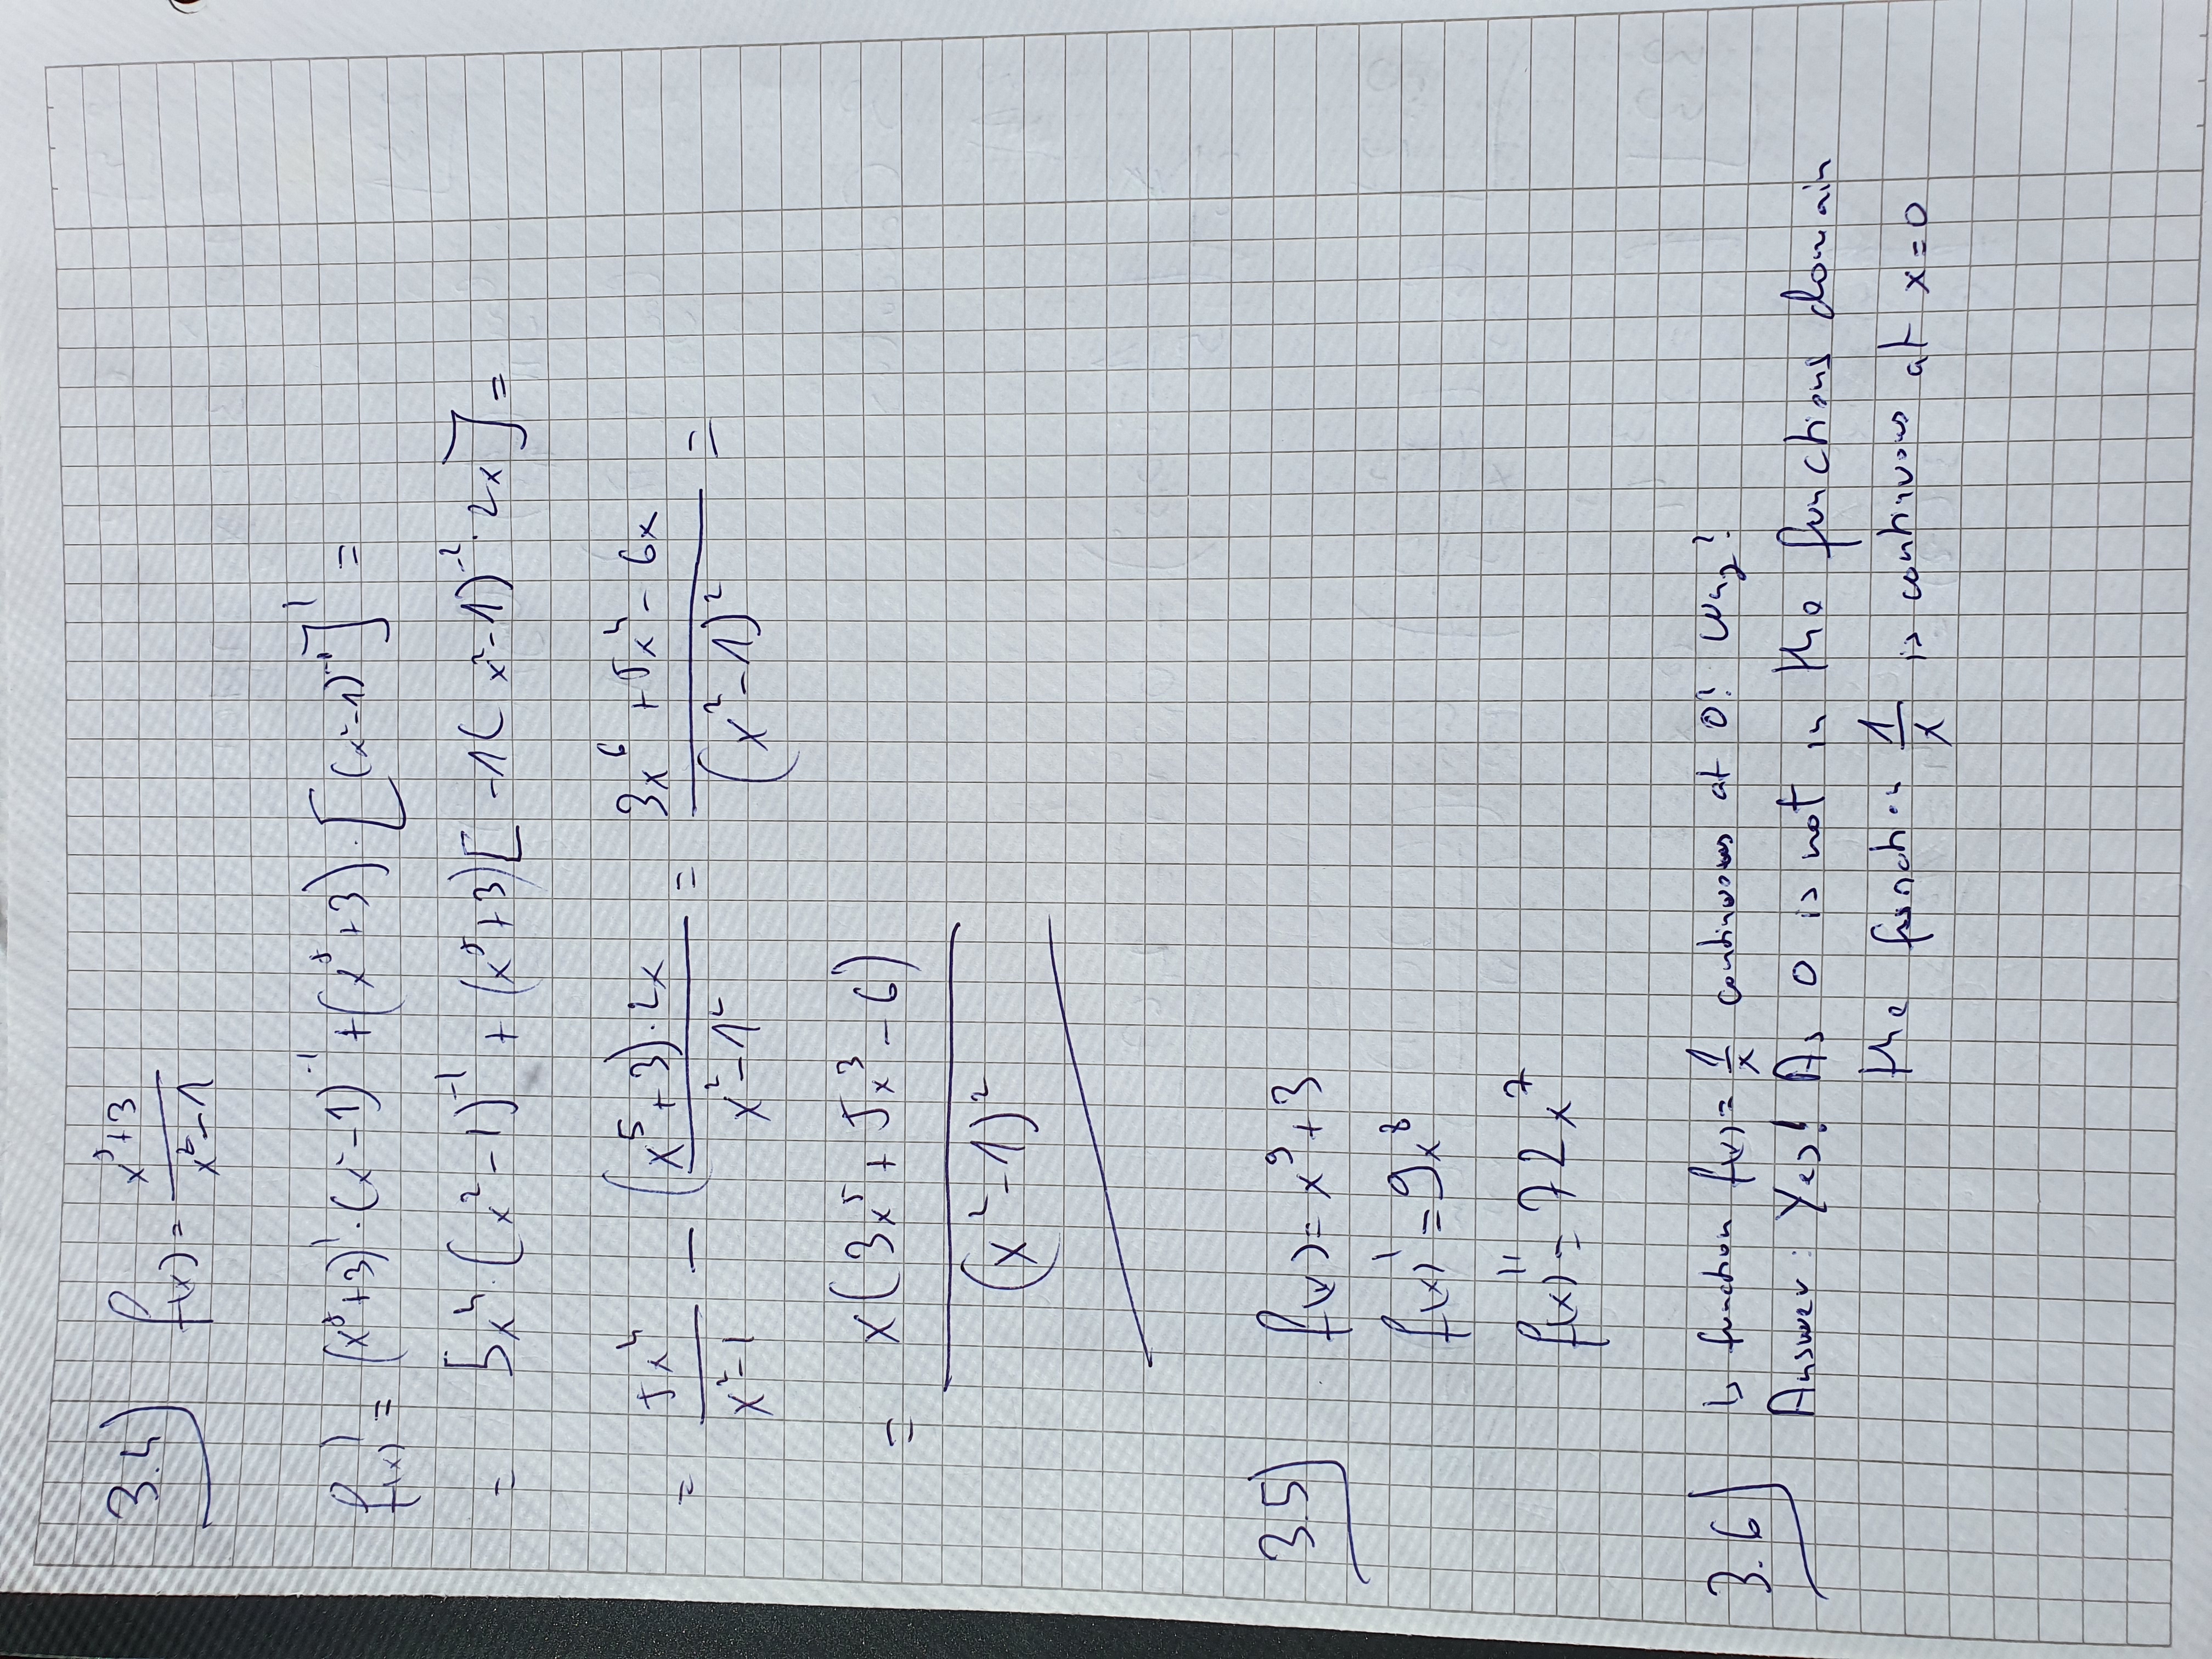 3.4) f(x) = (x^5+3)/(x^2-1)
f(x)' = (x^5+3)'·(x^2-1)^-1 + (x^5+3)·[(x^2-1)^-1]' =
= 5x^4·(x^2-1)^-1 + (x^5+3)[-1(x^2-1)^-2·2x] =
= 5x^4/(x^2-1) - (x^5+3)·2x/(x^2-1^2) = (3x^6+5x^4-6x)/(x^2-1)^2 =
= x(3x^5+5x^3-6)/(x^2-1)^2
3.5) f(x) = x^9+3
f(x)' = 9x^8
f(x)'' = 72x^7
3.6) Is function f(x) = 1/x continuous at 0? Why?
Answer: Yes! As 0 is not in the functions domain
the function 1/x is continuous at x=0